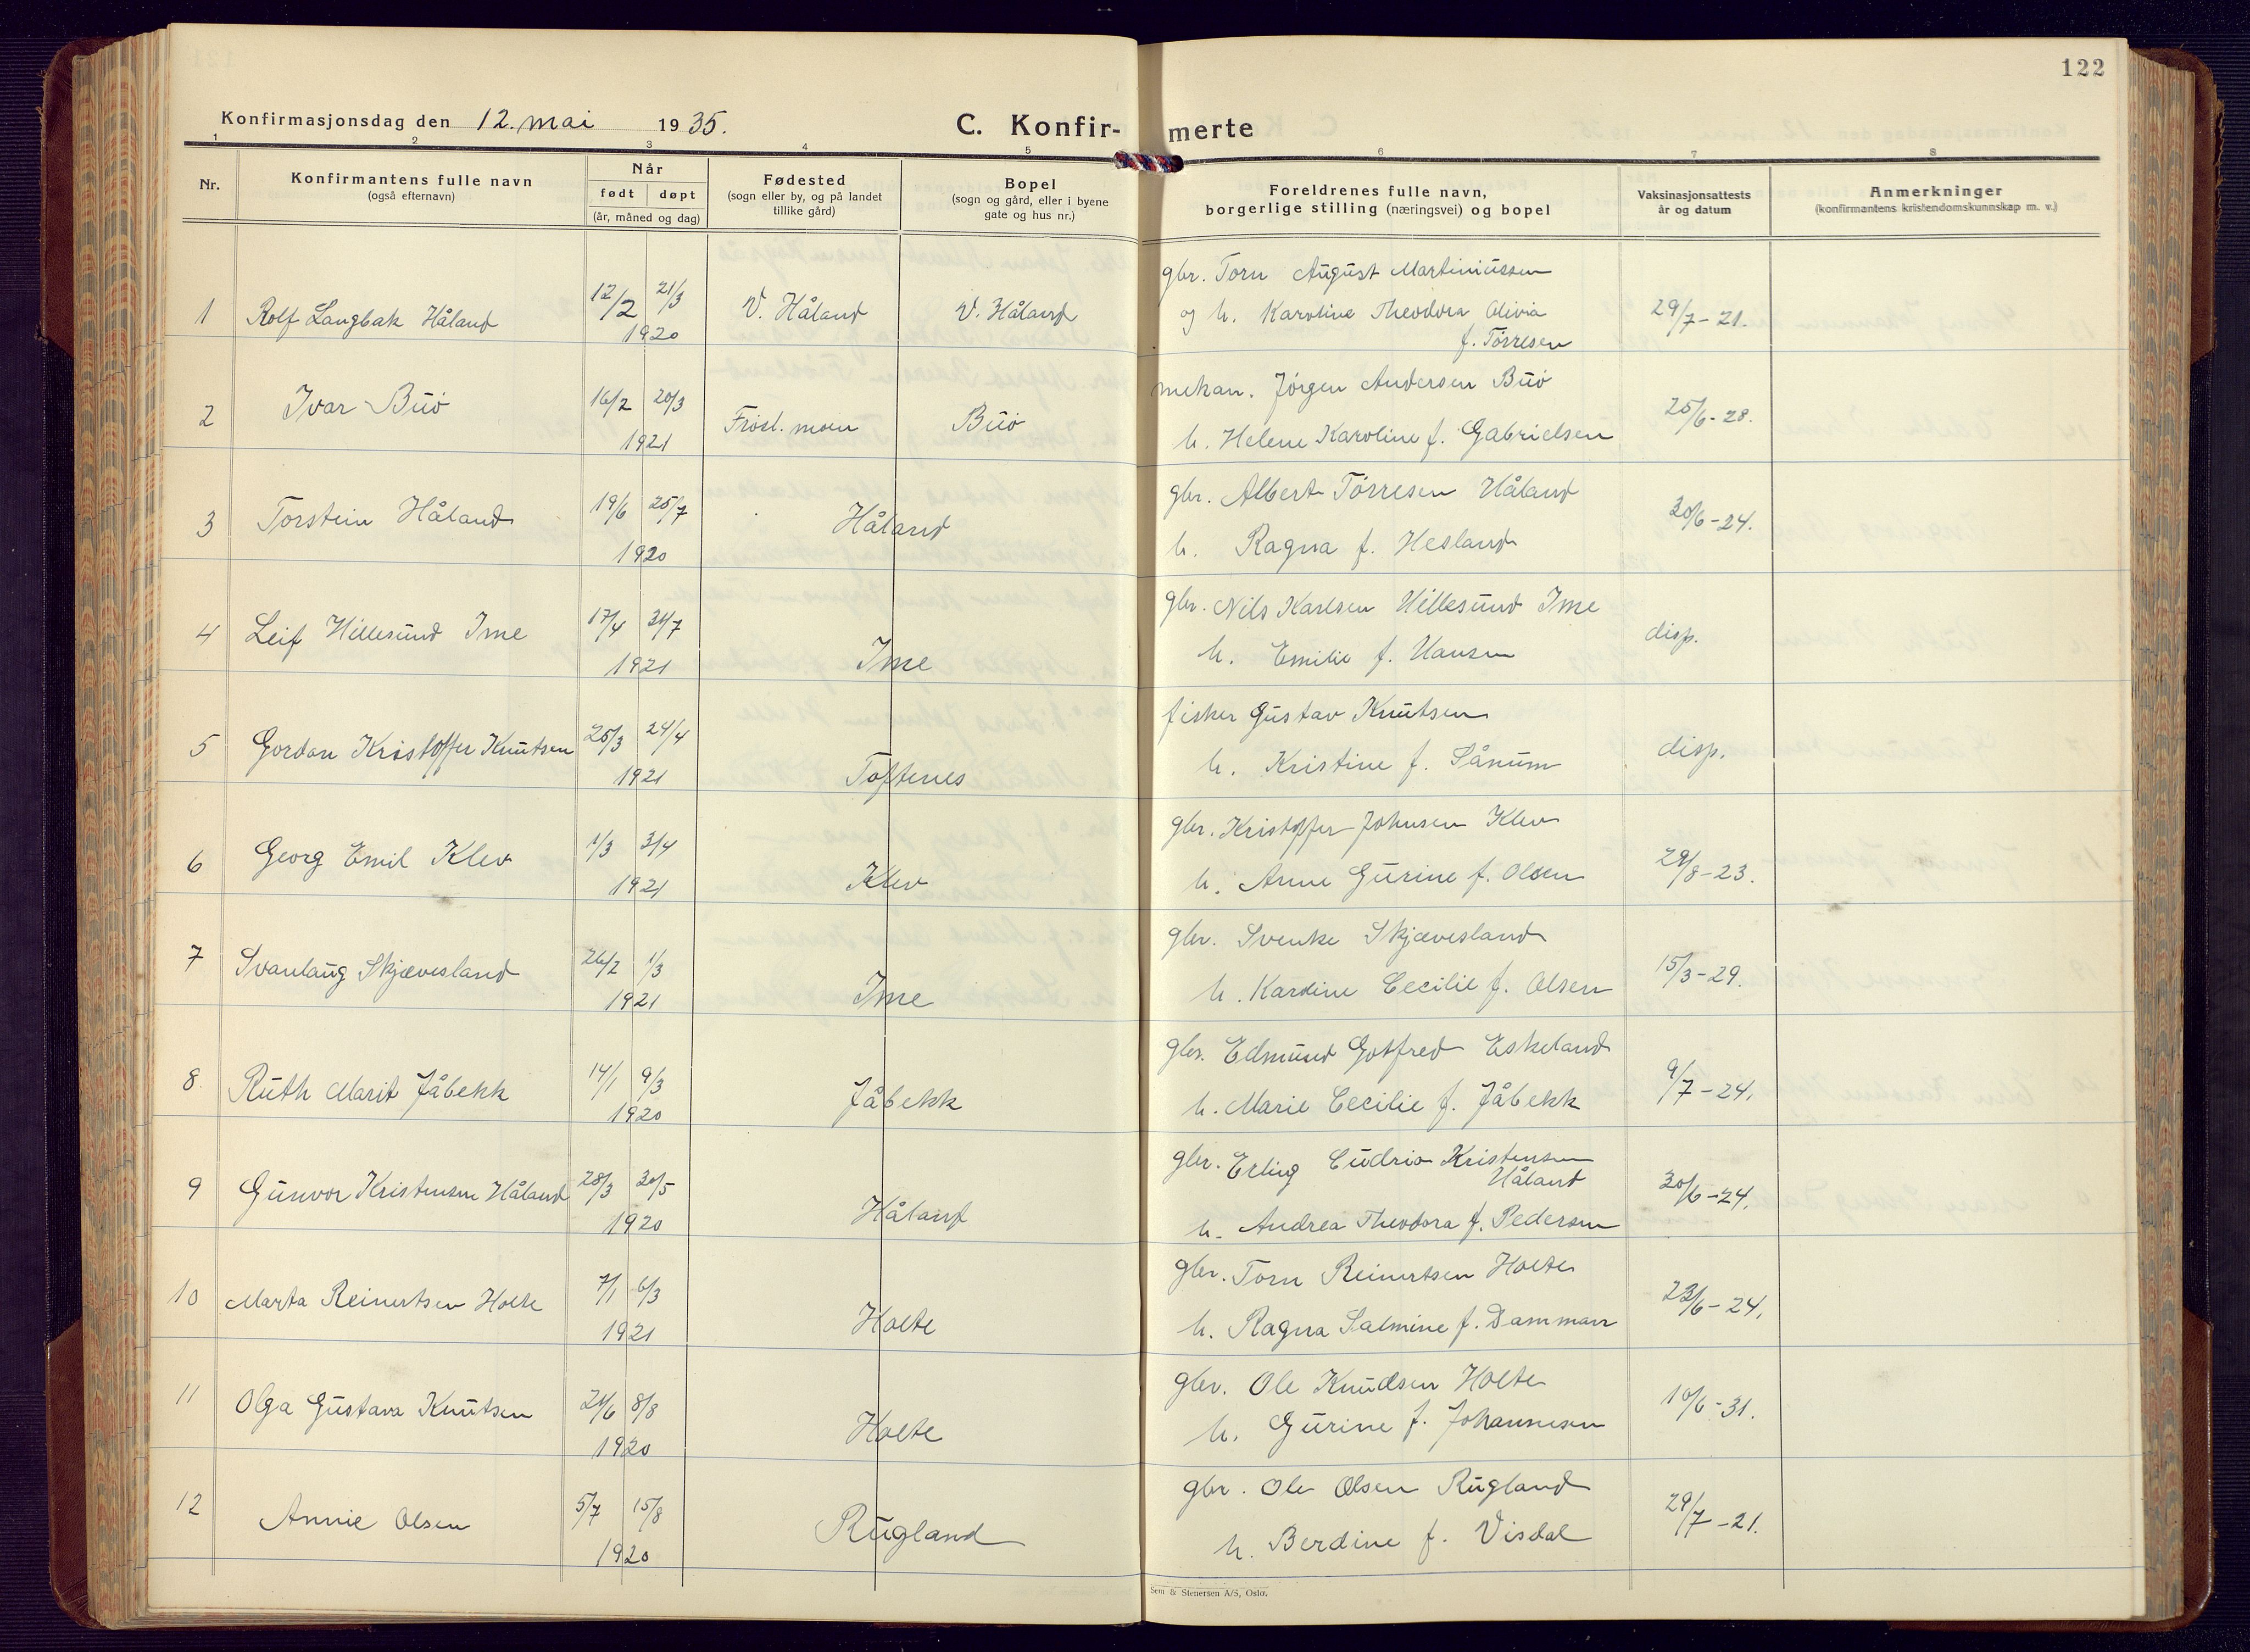 122
Konfirmasjonsdag den 12. mai 1935.
C. Konfir-merte
1 2 3 4 5 6 7 8
Nr.
Konfirmantens fulle navn
(også efternavn)
Når
født døpt
(år, måned og dag)
Fødested
(sogn eller by, og på landet
tillike gård)
Bopel
(sogn og gård, eller i byene
gate og hus nr.)
Foreldrenes fulle navn,
borgerlige stilling (næringsvei) og bopel
Vaksinasjonsattests
år og datum
Anmerkninger
(konfirmantens kristendomskunnskap m. v.)
gbr. Torn August Martiniussen
1 Rolf Langbak Håland 12/2 21/3 V. Håland V. Håland og h. Karoline Theodora Olivia 29/7-21.
1920 f. Tørresen
2 Ivar Buø 16/2 20/3 Frøsl. moen Buø mekan. Jørgen Andersen Buø 25/6-28.
1921 h. Helene Karoline f. Gabrielsen
3 Torstein Håland 19/6 25/7 Håland gbr. Albert Tørresen Håland 30/6-24.
1920 h. Ragna f. Hesland
4 Leif Hillesund Ime 17/4 24/7 Ime gbr. Nils Karlsen Hillesund Ime disp.
1921 h. Emilie f. Hansen
5 Gordon Kristoffer Knutsen 25/3 24/4 Toftenes fisker Gustav Knutsen disp.
1921 h. Kristine f. Sånum
6 Georg Emil Klev 1/3 3/4 Klev gbr. Kristoffer Johnsen Klev 29/8-23.
1921 h. Anne Gurine f. Olsen
7 Svanlaug Skjævesland 26/2 1/3 Ime gbr. Svenke Skjævesland 15/3-29.
1921 h. Karoline Cecilie f. Olsen
8 Ruth Marit Jåbekk 14/1 9/3 Jåbekk gbr. Edmund Gotfred Eskeland 9/7-24.
1920 h. Marie Cecilie f. Jåbekk
9 Gunvor Kristensen Håland 28/3 30/5 Håland gbr. Erling Cudrio Kristensen 30/6-24.
Håland
1920 h. Andrea Theodora f. Pedersen
10 Marta Reinertsen Holte 7/1 6/3 Holte gbr. Torn Reinertsen Holte 23/6-24.
1921 h. Ragna Salmine f. Damman
11 Olga Gustava Knutsen 24/6 8/8 Holte gbr. Ole Knudsen Holte 10/6-31.
1920 h. Gurine f. Johannesen
12 Annie Olsen 5/7 15/8 Rugland gbr. Ole Olsen Rugland 29/7-21.
1920 h. Berdine f. Visdal
Sem & Stenersen A/S, Oslo.